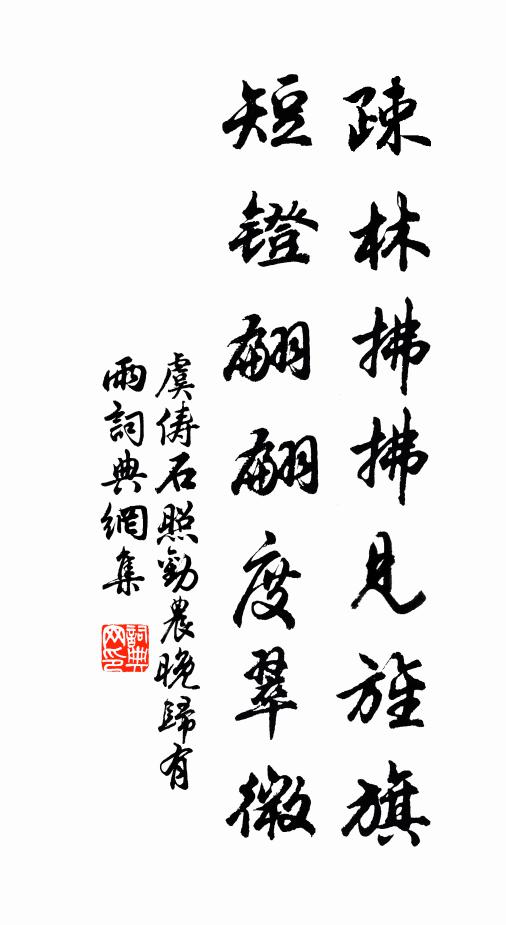 疎林拂拂見旌旗
短鐙翩翩度翠微
虞儔石照勸農晚歸有
雨詞典網集
詞典
网印